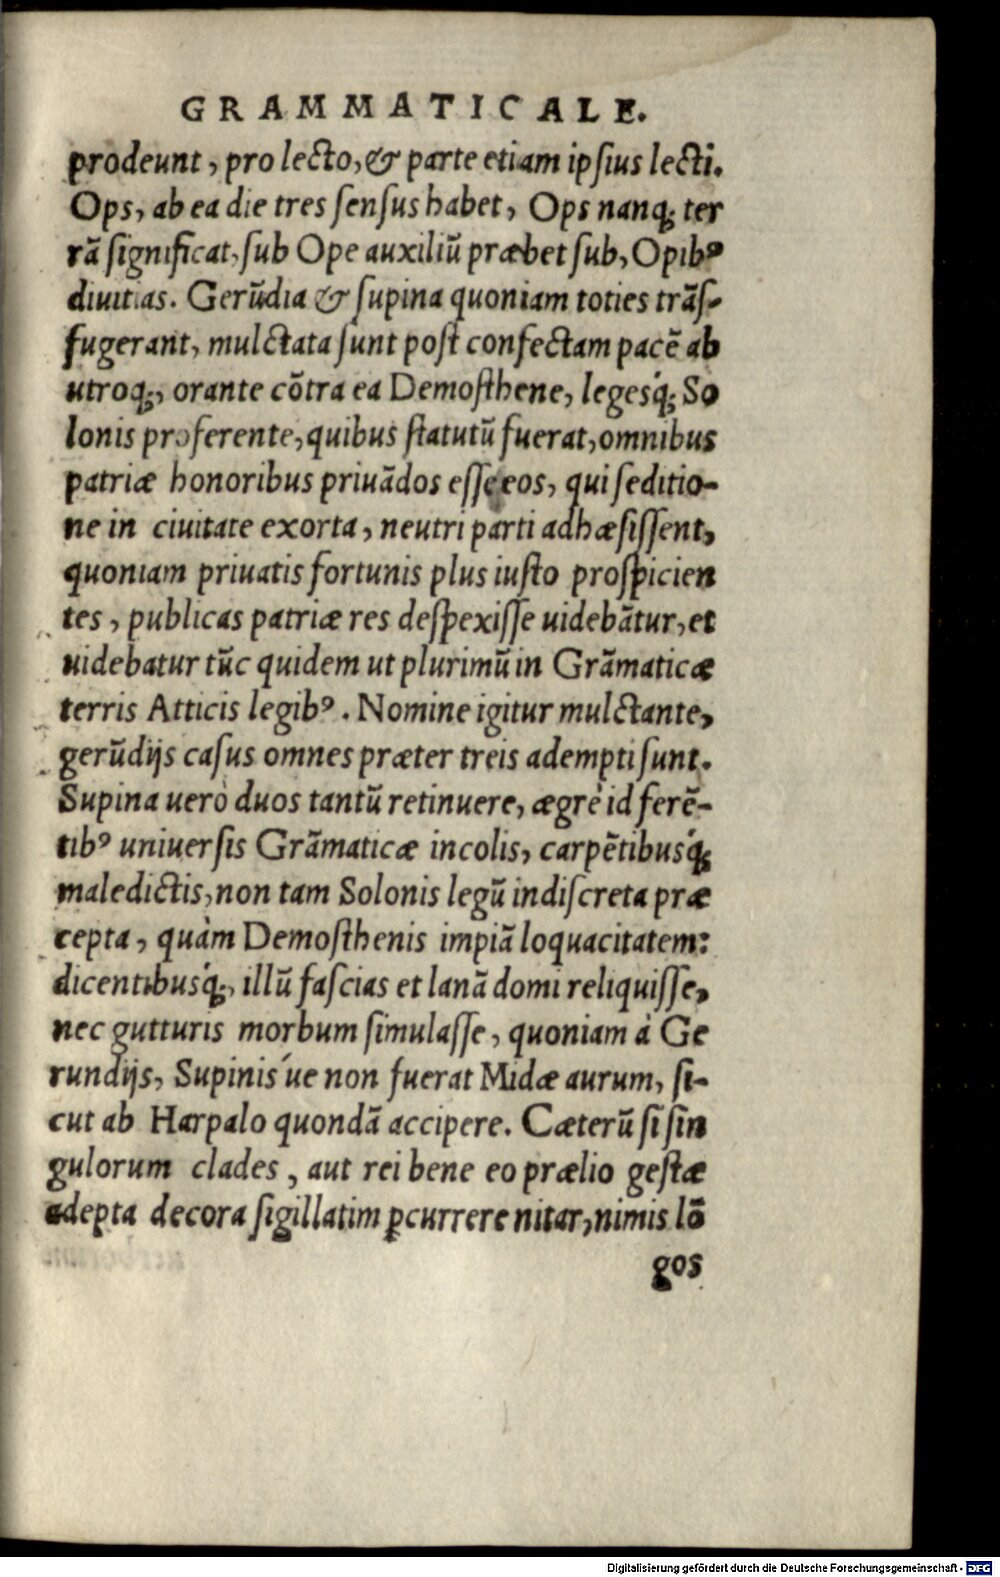 GRAMMATICALE.
prodeunt, pro lecto, & parte etiam ipſius lecti.
Ops, ab ea die tres ſenſus habet, Ops nanq; ter
rã ſignificat, ſub Ope auxiliũ præbet ſub, Opibꝰ
diuitias. Gerũdia & ſupina quoniam toties trãſ-
fugerant, mulctata ſunt poſt confectam pacẽ ab
utroq;, orante cõtra ea Demoſthene, legesq́; So
lonis proferente, quibus ſtatutũ fuerat, omnibus
patriæ honoribus priuãdos eſſe eos, qui ſeditio-
ne in ciuitate exorta, neutri parti adhæſiſſent,
quoniam priuatis fortunis plus iuſto proſpicien
tes, publicas patriæ res deſpexiſſe uidebãtur, et
uidebatur tũc quidem ut plurimũ in Grãmaticæ
terris Atticis legibꝰ. Nomine igitur mulctante,
gerũdijs caſus omnes præter treis adempti ſunt.
Supina uerò duos tantũ retinuere, ægrè id ferẽ-
tibꝰ uniuerſis Grãmaticæ incolis, carpẽtibusq́;
maledictis, non tam Solonis legũ indiſcreta præ
cepta, quàm Demoſthenis impiã loquacitatem:
dicentibusq́;, illũ faſcias et lanã domi reliquiſſe,
nec gutturis morbum ſimulaſſe, quoniam à Ge
rundijs, Supinis ́ue non fuerat Midæ aurum, ſi-
cut ab Harpalo quondã accipere. Cæterũ ſi ſin
gulorum clades, aut rei bene eo prælio geſtæ
adepta decora ſigillatim ꝑcurrere nitar, nimis lõ
gos
Digitalisierung gefördert durch die Deutsche Forschungsgemeinschaft - DFG